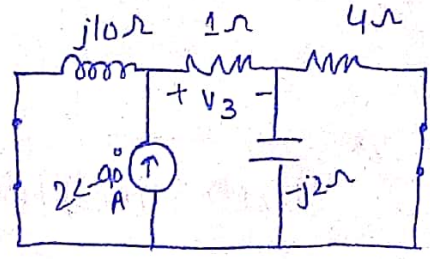 j10Ω 1Ω 4Ω
+ V3 -
2<-90°
A
-j2Ω